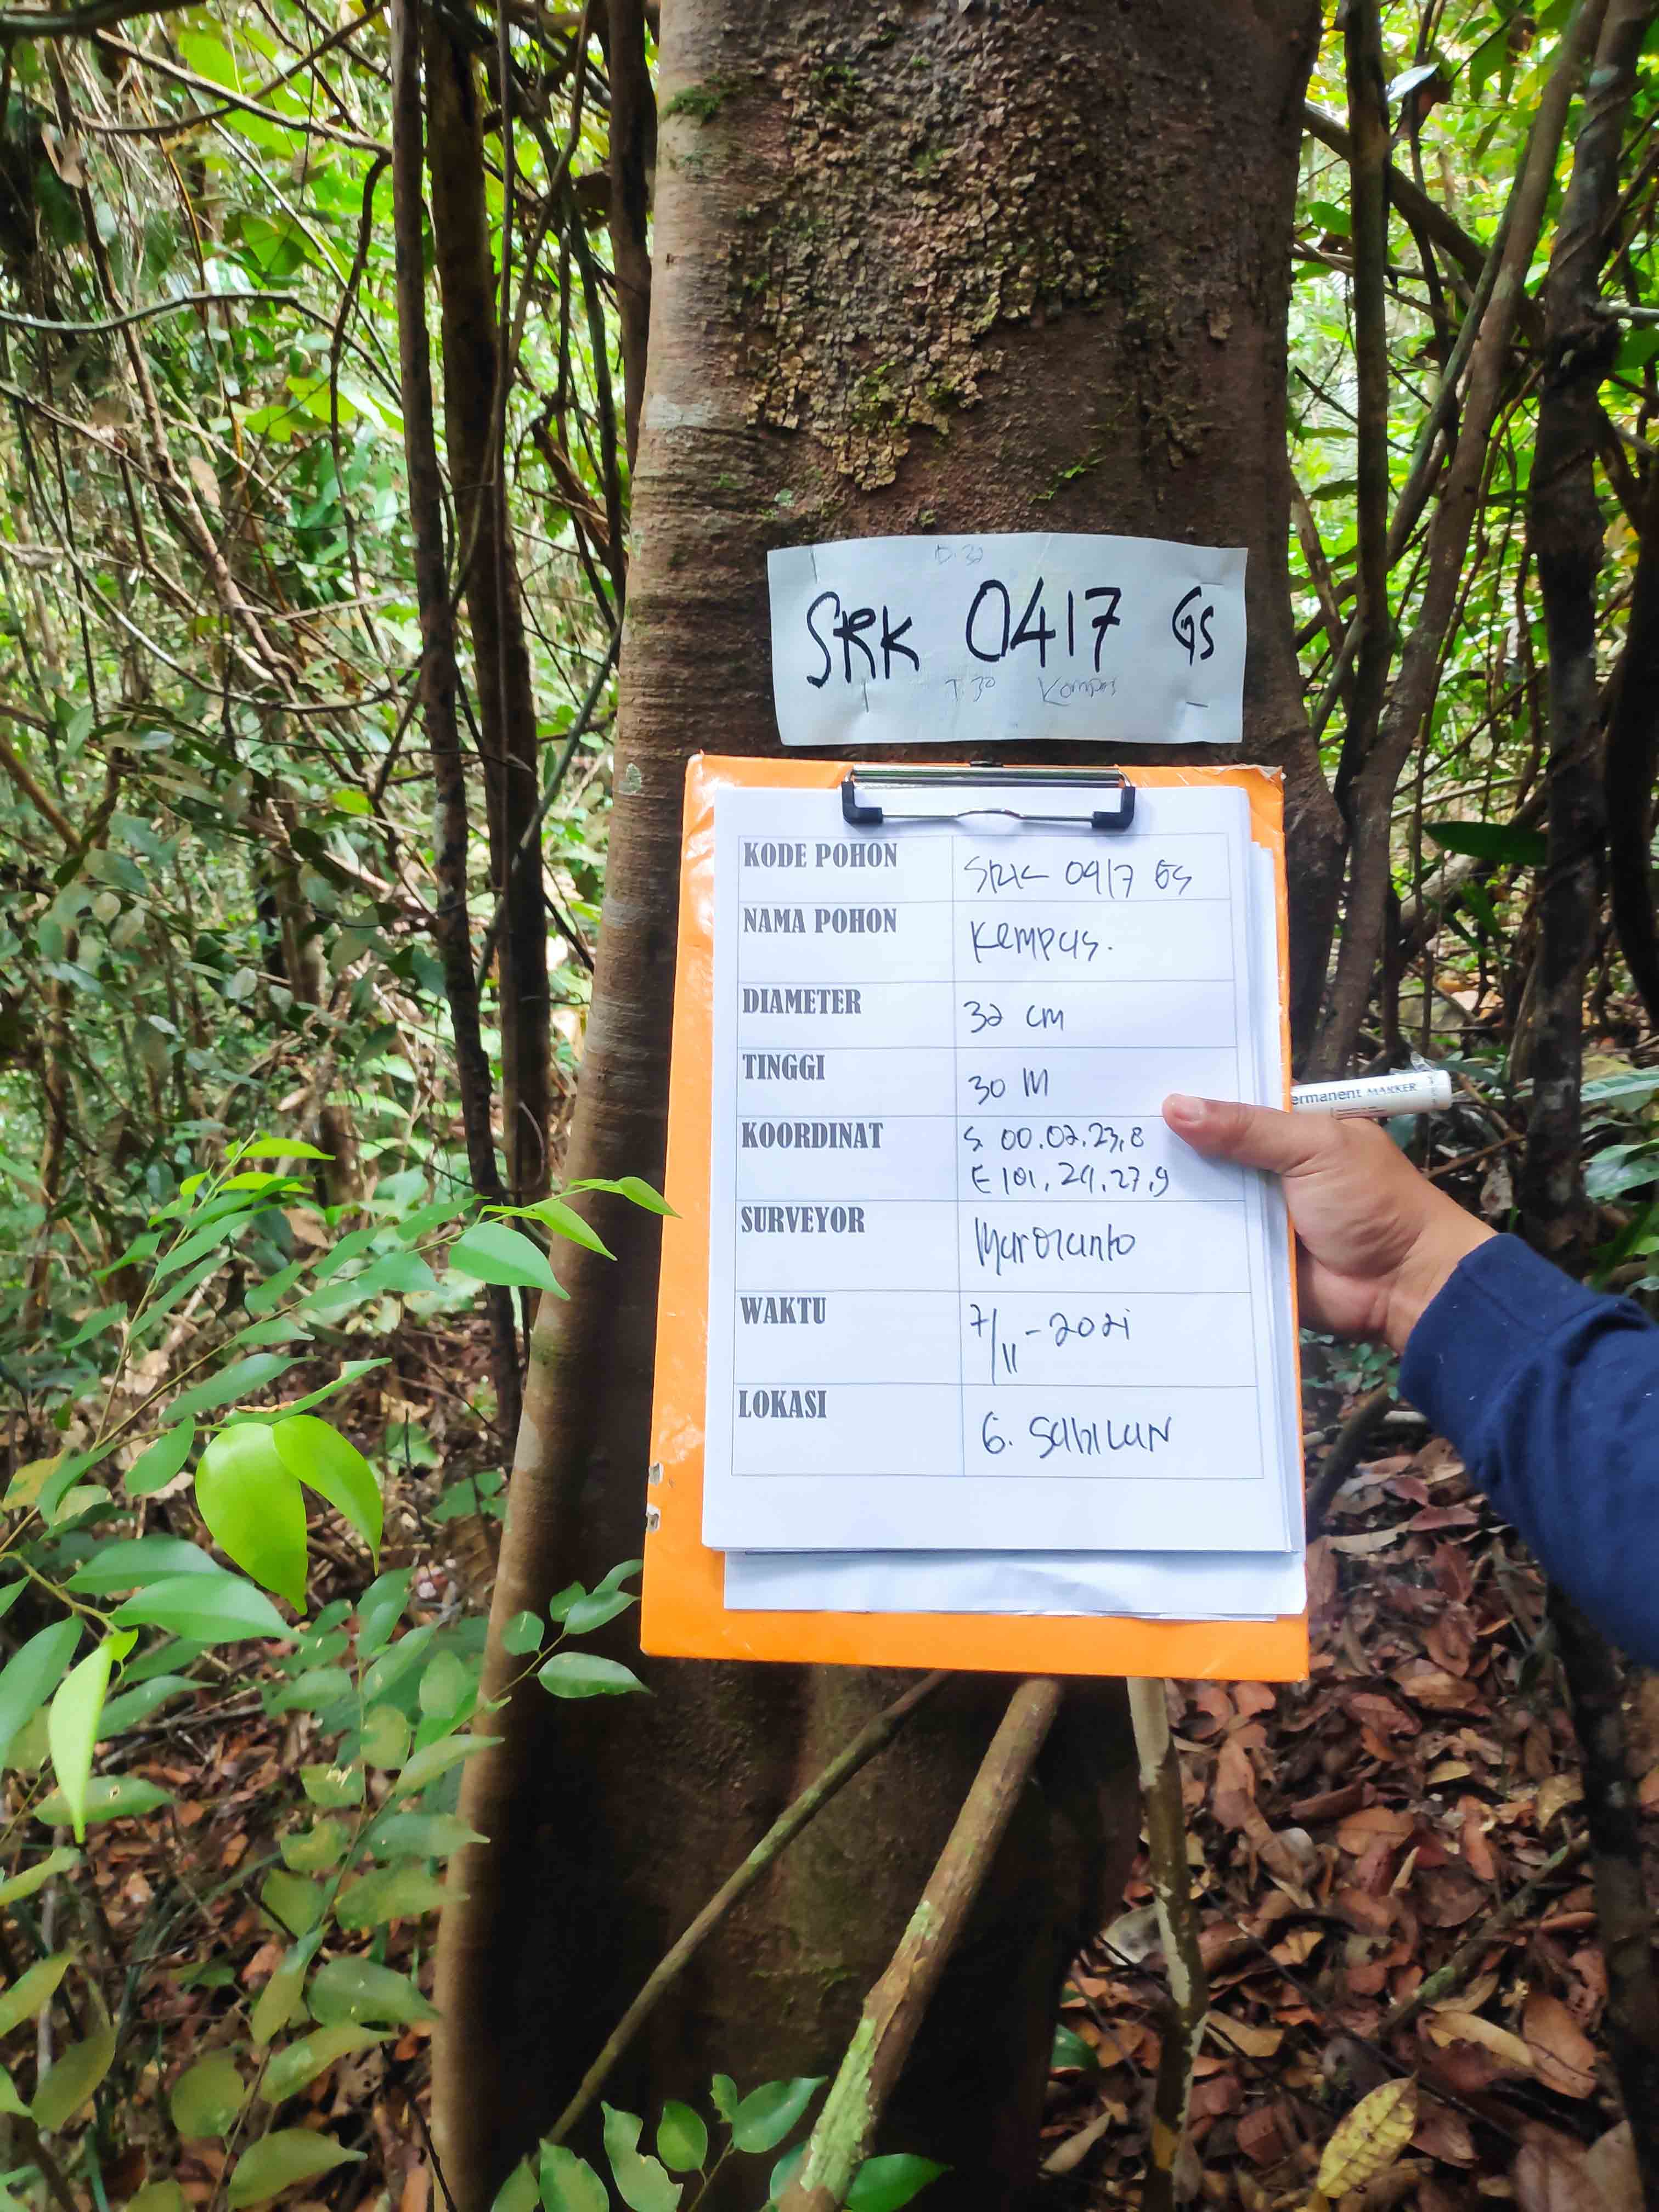 D.32
SRK 0417 GS
T.30 Kompas
KODE POHON SRK 0417 GS
NAMA POHON Kempas.
DIAMETER 32 cm
TINGGI 30 M
KOORDINAT S 00.02.23,8
E 101.24.27,9
SURVEYOR
WAKTU 7/11-2021
LOKASI G. Sahilan
ermanent MARKER